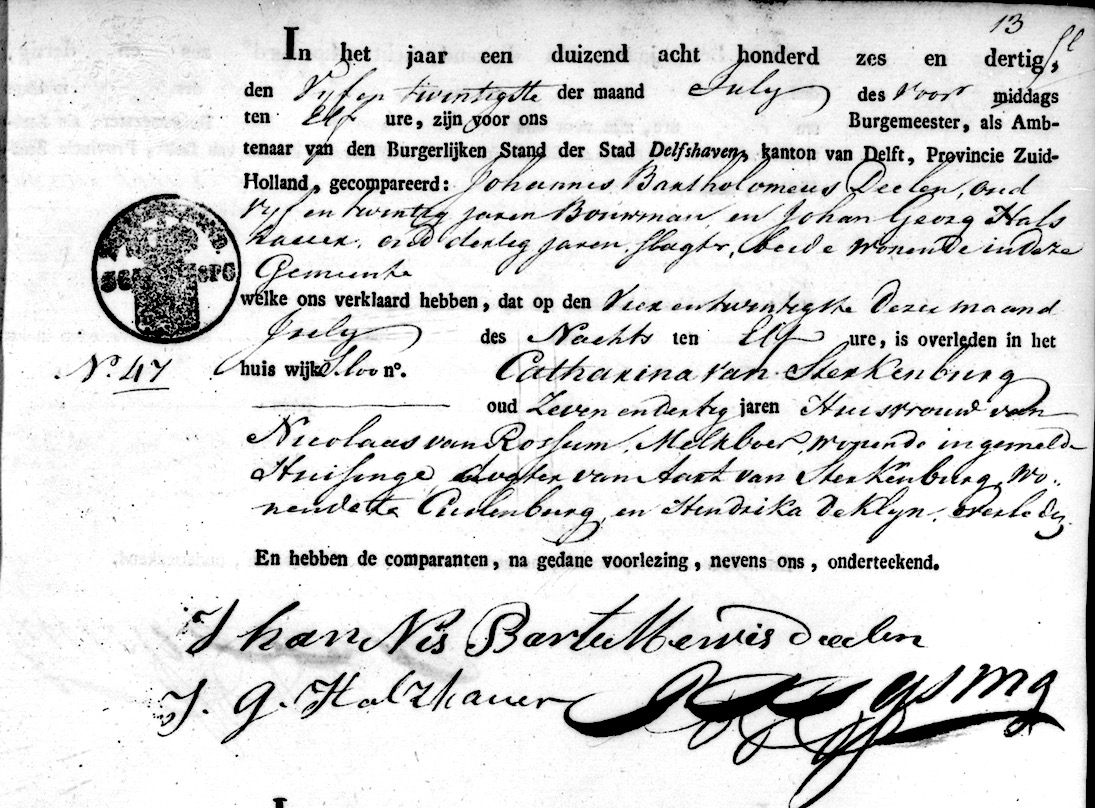 13
In het jaar een duizend acht honderd zes en dertig,
den Vyf en twintigste der maand July des Voor middags
ten Elf ure, zijn voor ons Burgemeester, als Amb-
tenaar van den Burgerlijken Stand der Stad Delfshaven, kanton van Delft, Provincie Zuid-
Holland, gecompareerd: Johannis Bartholomeus Deelen, oud
Vyf en twintig jaren Bouwman, en Johan Georg Hals
hauer, oud dertig jaren, slagtr, beide wonende in deze
Gemeente
welke ons verklaard hebben, dat op den Vier en twintigste dezer maand
July des Nachts ten Elf ure, is overleden in het
No. 47
huis wijk no. Catharina van Sterkenburg
oud Zeven en dertig jaren Huisvrouw van
Nicolaas van Rossum, Melkboer, wonende in gemelde
Huisinge dogter van Aart van Sterkenburg, wo-
nende te Culenburg, en Hendrika de Klyn, overleden
En hebben de comparanten, na gedane voorlezing, nevens ons, onderteekend.
JhanNis deelen
J. G. Holzhauer